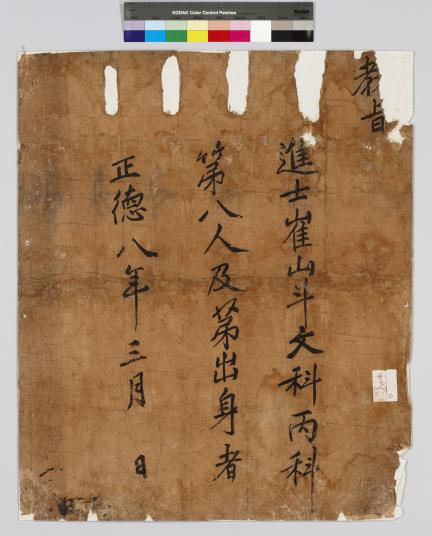 KODAK Color Control Patches
教旨
進士崔山斗文科丙科
第八人及第出身者
正德八年三月 日